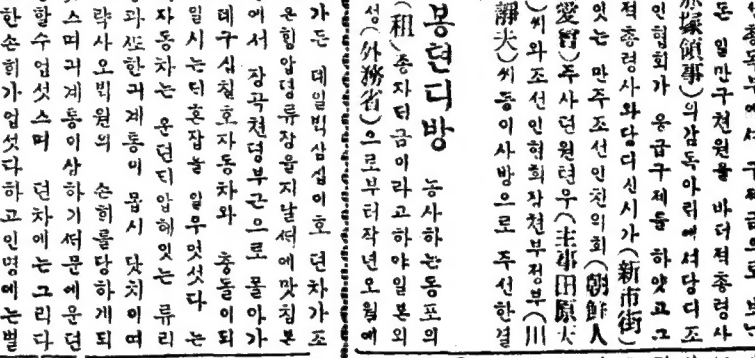 돈 일만구천원을 바더적총령사
赤塚領事)의감독아리에셔당디조
인협회가 응급구제를 하얏고그
적총령사와당디신시가(新市街)
잇는 만주조선인친의회(朝鮮人
愛會)주사뎐원텬우(主事田原天
)씨와조선인협회장천부정부(川
靜夫)씨등이사방으로 주선한결
봉텬디방 농사하는동포의
(租)종자디금이라고하야일본외
성(外務省)으로부터작년오월에
가든 뎨일빅삼십이호 뎐차가조
은힝압뎡류장을지날ㅼㅐ에맛침본
에서 장곡쳔뎡부근으로 몰아가
뎨구십칠호자동차와 충돌이되
일시는더혼잡을 일우엇섯다 는
자동차는 운뎐디압헤잇는 류리
한긔계통이 몹시 닷치이여
략사오빅원의 손희를당하게되
스며긔계통이상하기ㅼㅐ문에운뎐
할수업섯스며 뎐차에는그리다
한손희가업섯다하고인명에는별